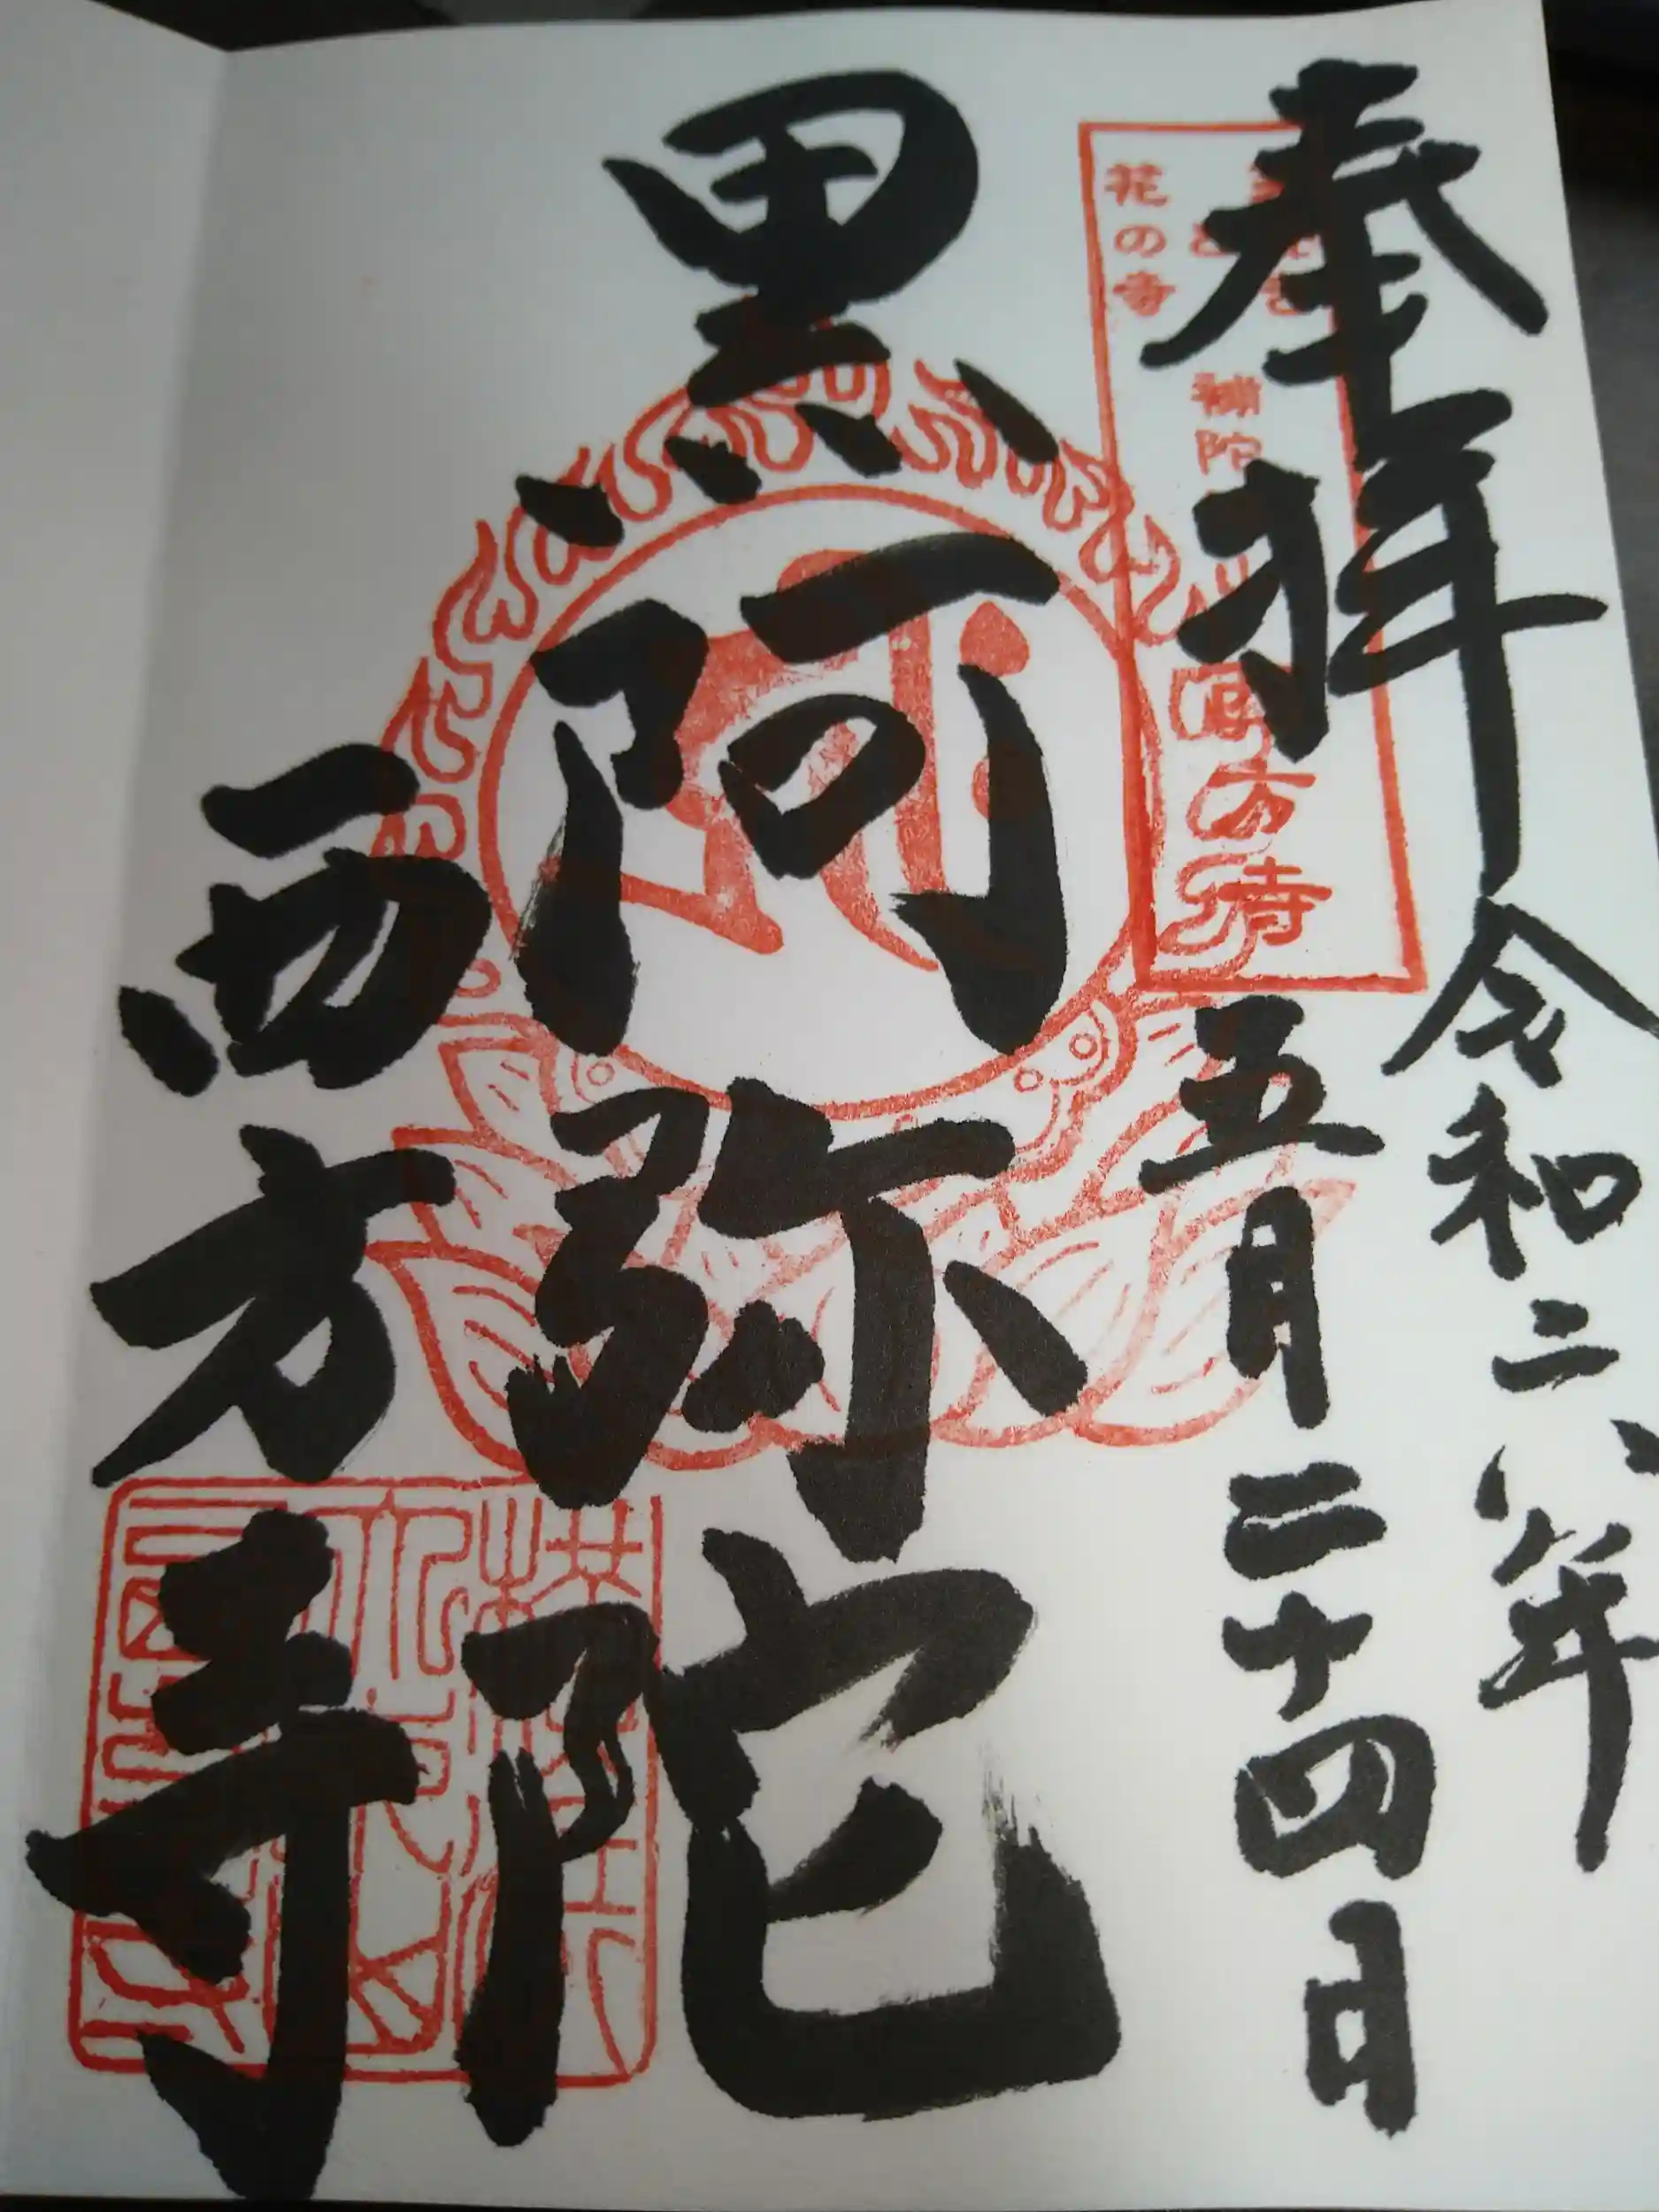 奉拝
令和六年
五月二十四日
花の寺
補陀
方寺
黒阿弥陀
西方寺